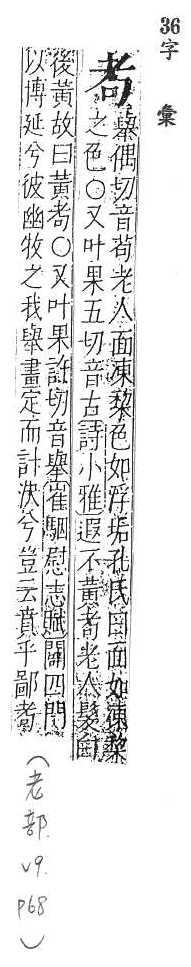 36字 彙
耇偶切音苟老人面凍黎色如浮垢孔氏曰面如凍黎
之色○又叶果五切音古詩小雅遐不黃耇老人髮白
後黃故曰黃耇○又叶果許切音舉崔駰慰志賦闢四門
以博延兮彼幽牧之我舉畫定而計決兮豈云賁乎鄙耇
(老部. v9. p68)